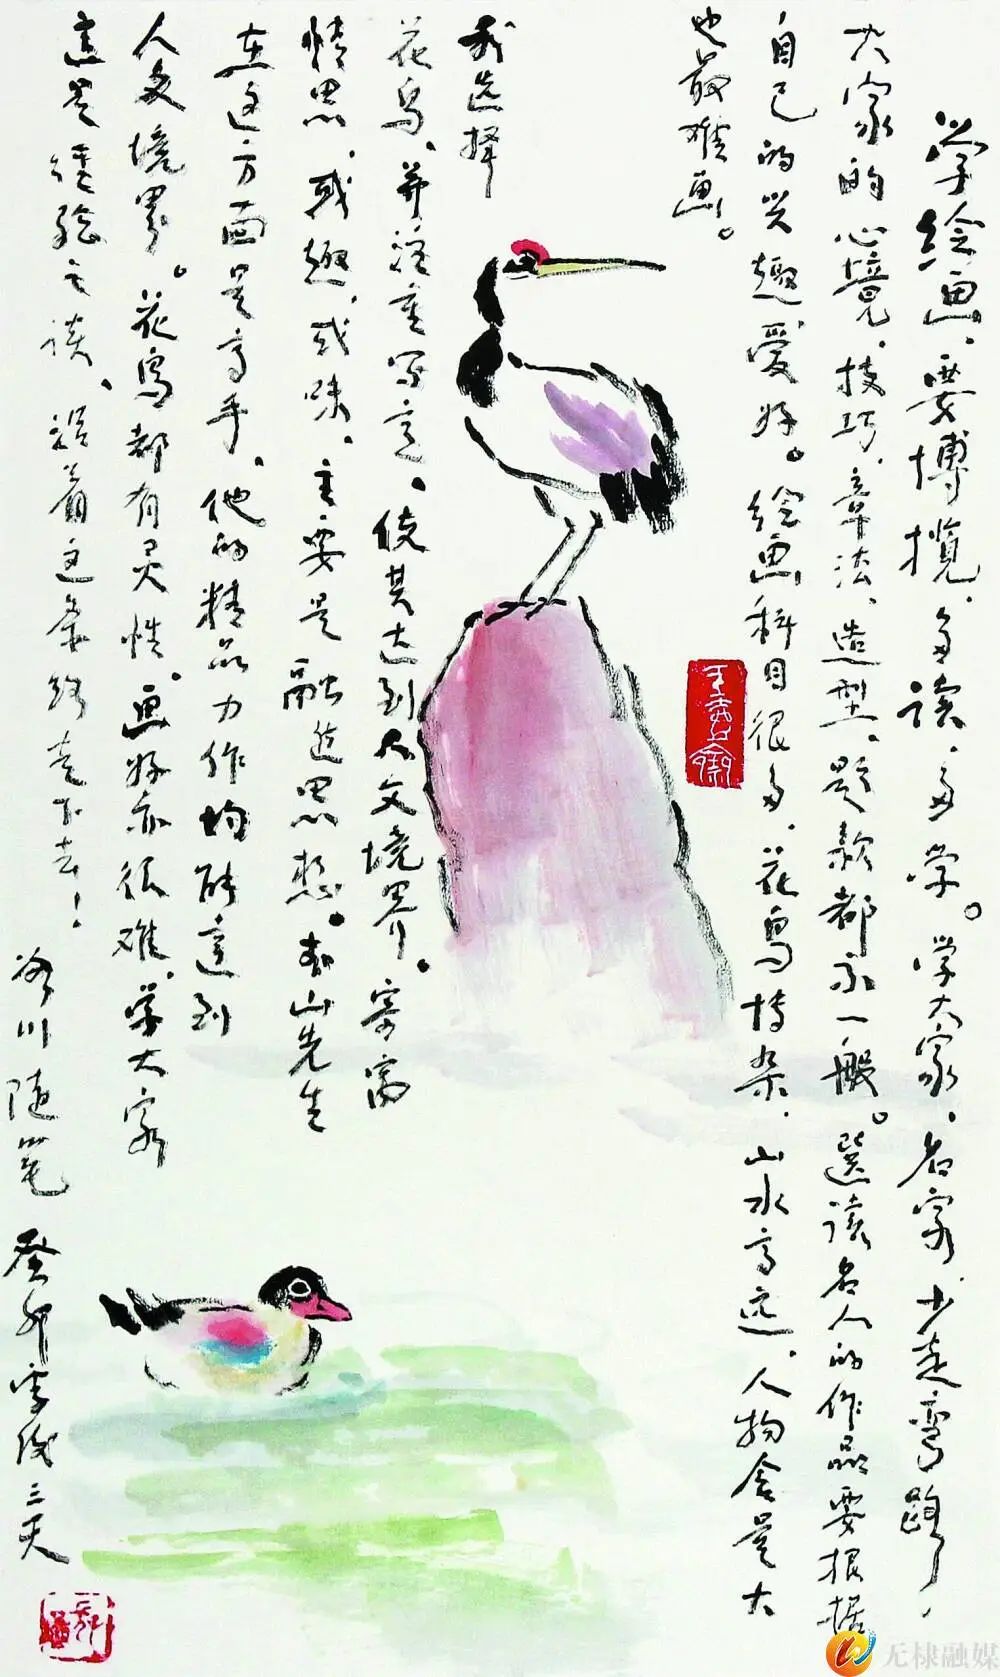 学绘画、要博揽、多读、多学。学大家、名家少走弯路、
大家的心境、技巧、章法、造型、题款都不一般。选读名人的作品要根据
自己的兴趣爱好。绘画科目很多、花鸟博杂、山水高远、人物含量大
也最难画。
我选择
花鸟、并注重写意、使其达到人文境界。寄寓
情思、或趣、或味、主要是融进思想。山先生
在这方面是高手、他的精品力作均能达到
人文境界。花鸟都有灵性、画好亦很难、学大家
这是经验之谈、沿着这条路走下去！
川随笔
癸卯 三天
无棣融媒